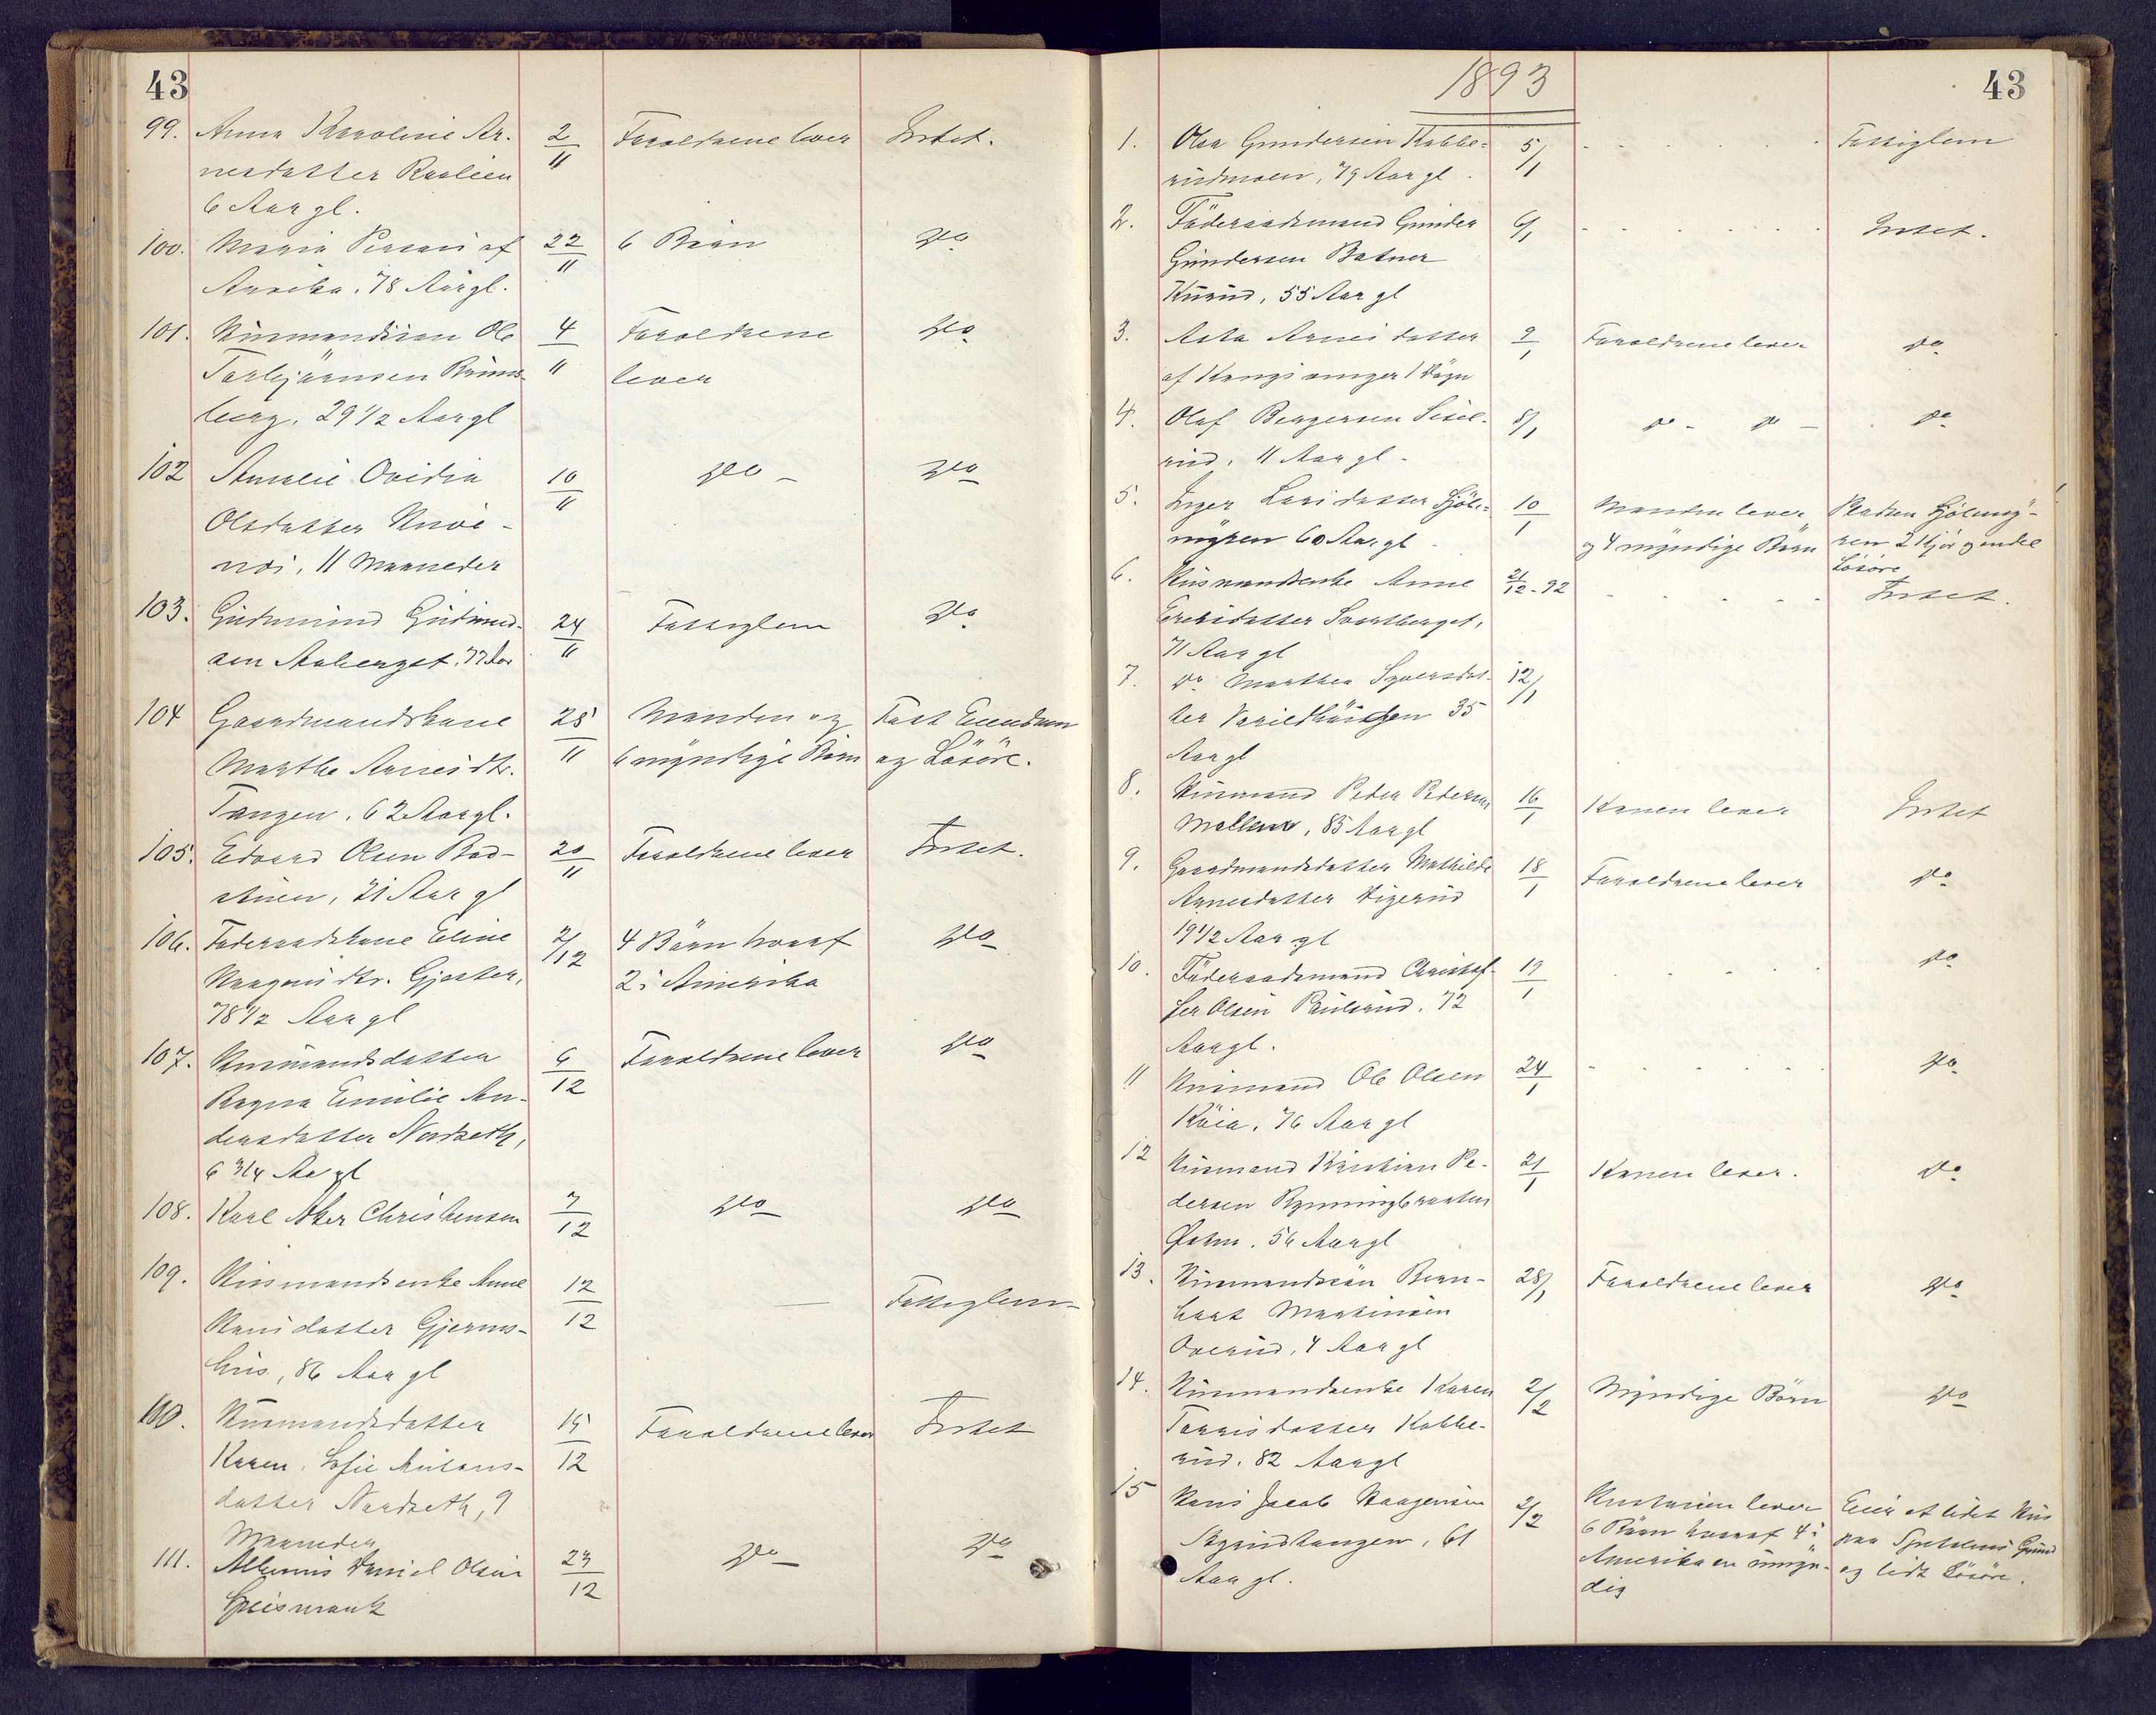 43
99. Anna Karoline Ar- 2/11 Forældrene lever Intet.
nesdatter
6 Aar gl.
100. Maria af 22/11 6 Børn do
78 Aar gl.
101. Husmandssøn Ole 4/11 Forældrene do
Torbjørnsen lever
29 1/2 Aar gl
102 Amalie Ovidia 10/11 do - do
Olsdatter
11 Maaneder
103. Gudmund Gudmund- 24/11 Fattiglem do
sen 77 Aar
104 Gaardmandskone 25/11 Manden og Fast Eiendom
Marthe Arnesdtr. 6 myndige Børn og Løsøre.
Tangen, 62 Aar gl.
105. Edvard Olsen 20/11 Forældrene lever Intet.
21 Aar gl
106. Føderaadskone Eline 2/12 4 Børn hvoraf do
Haagensdtr. Gjester, 2 i Amerika
78 1/2 Aar gl
107. Husmandsdatter 6/12 Forældrene lever do
Ragna Emilie An-
dersdatter Nordseth,
6 3/4 Aar gl
108. Karl Christensen 7/12 do do
109. Husmandsenke Anne 12/12 — Fattiglem
Hansdatter Gjerms-
hus, 86 Aar gl
110. Husmandsdatter 15/12 Forældrene lever Intet
Karen Sofie Antons-
datter Nordseth, 9
Maaneder
111. Albinus Daniel Olsen 23/12 do do
Greismark
43
1893
1. Olea Gundersen Kobbe- 5/1 Fattiglem
rudmoen, 79 Aar gl.
2. Føderaadsmand Gunder 6/1 Intet.
Gundersen Batner
55 Aar gl
3. Asta Arnesdatter 9/1 Forældrene lever do
af Kongsvinger 1 Døgn
4. Olaf Bergersen Sisel- 8/1 do - do - do
rud, 11 Aar gl.
5. Inger Larsdatter Hjøl- 10/1 Manden lever Pladsen
myren 60 Aar gl. og 4 myndige Børn ren 2 Kjør og endel
Løsøre
6. Husmandsenke Anne 21/12-92 Intet.
Svartberget,
71 Aar gl
7. do Marthea Syversdat- 12/1
ter 35
Aar gl
8. Husmand Peder Pedersen 16/1 Konen lever Intet
Mellem, 85 Aar gl
9. Gaardmandsdatter Mathilde 18/1 Forældrene lever do
Arnesdatter Digerud
19 1/2 Aar gl
10. Føderaadsmand Christof- 19/1 do
fer Olsen Paulsrud, 72
Aar gl.
11 Husmand Ole Olsen 24/1 do
76 Aar gl
12 Husmand Kristian Pe- 21/1 Konen lever. do
dersen Rynningbraaten
56 Aar gl
13. Husmandssøn Bern- 28/1 Forældrene lever do
hart Martinsen
Overud, 4 Aar gl
14. Husmandsenke Karen 2/2 Myndige Børn do
Torrisdatter Kobbe-
rud, 82 Aar gl
15 Hans Jacob Haagensen 2/2 Hustruen lever Eier et lidet Hus
61 6 Børn hvoraf 4 i paa Grund
Aar gl. Amerika en umyn- og lidt Løsøre.
dig